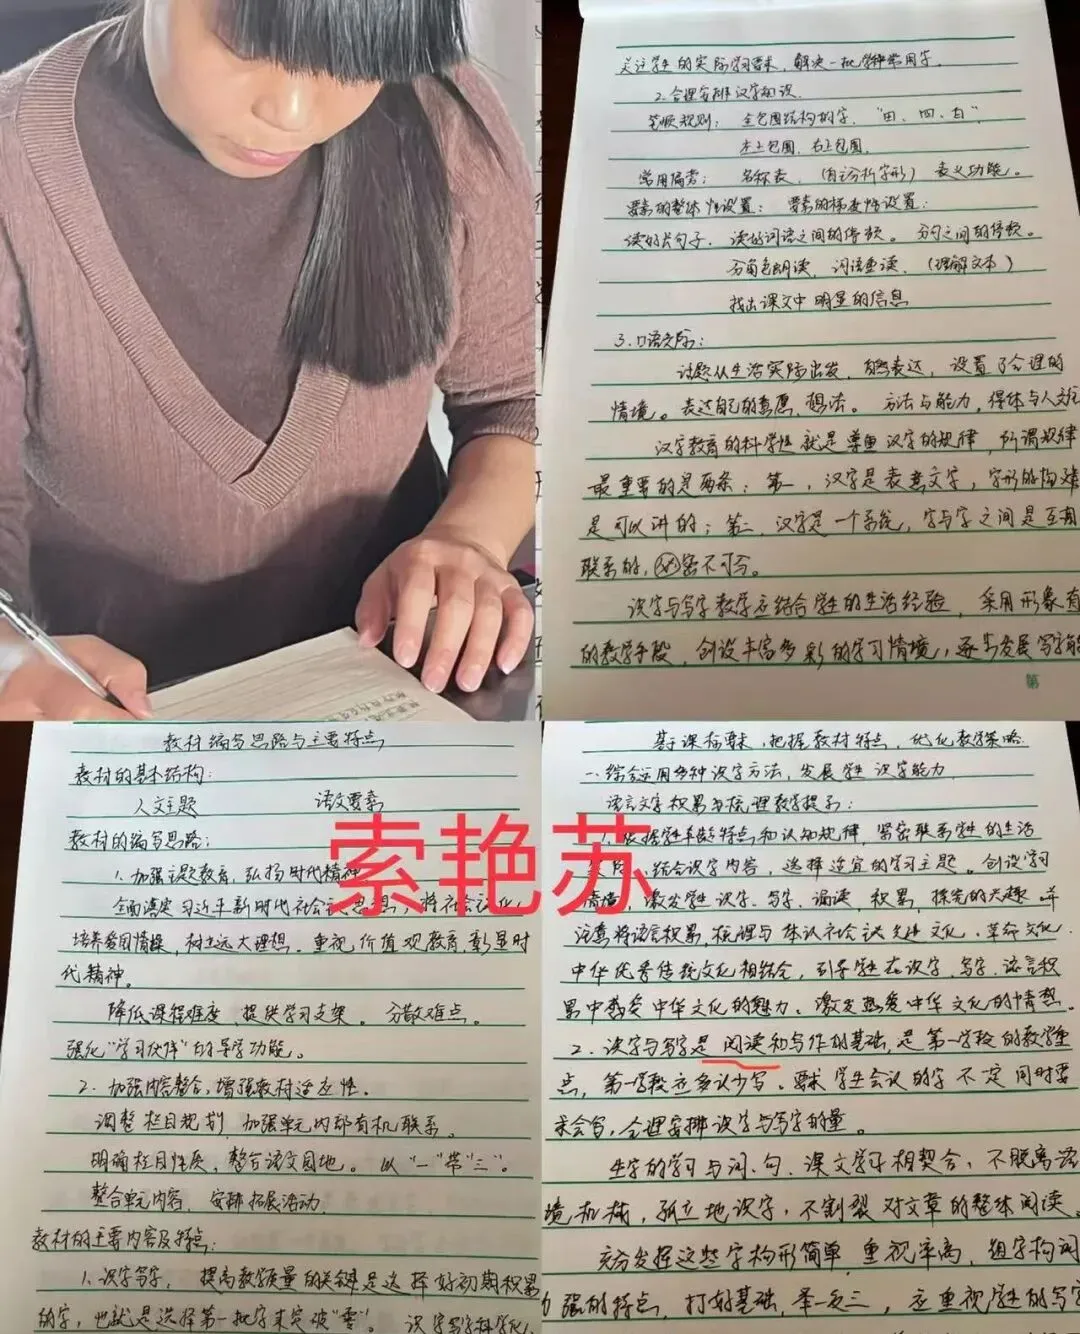 关注学生的实际学习需求，解决一批学种常用字。
2.合理安排汉字知识
笔顺规则：全包围结构的字，"田、四、自"
左上包围、右上包围，
常用偏旁：名称表，（自主分析字形）表义功能。
要素的整体性设置：要素的梯度性设置：
读好长句子、读好词语之间的停顿。分句之间的停顿。
分角色朗读、词语重读、（理解文本）
找出课文中明显的信息
3.口语交际：
话题从生活实际出发，有的表达，设置了合理的
情境。表达自己的意愿、想法。方法与能力，得体与人文
汉字教育的科学性就是尊重汉字的规律，所谓规律
最重要的是两条：第一，汉字是表意文字，字形的构造
是可以讲的；第二，汉字是一个系统，字与字之间是互相
联系的，密不可分。
识字与写字教学应结合学生的生活经验，采用形象直
的教学手段，创设丰富多彩的学习情境，逐步发展写字的
第
教材编写思路与主要特点
教材的基本结构：
人文主题 语文要素
教材的编写思路：
1.加强主题教育，弘扬时代精神
全面落实习近平新时代社会主义思想，将社会
培养爱国情操，树立远大理想。重视价值观教育，彰显时
代精神。
降低课程难度、提供学习支架。分散难点。
强化"学习伙伴"的导学功能。
2.加强内容整合，增强教材适应性。
调整栏目规划，加强单元内部有机联系。
明确栏目性质，整合语文园地。以"一"带"三"。
整合单元内容，安排拓展活动，
教材的主要内容及特点：
1.识字写字，提高教学质量的关键是选择好初期积累
的字，也就是选择第一批字来突破"零"。识字写字科学化，
基于课标要求，把握教材特点，优化教学策略
一.综合运用多种识字方法，发展学生识字能力
语言文字积累与梳理教学提示：
1.依据学生年龄特点和认知规律，紧密联系学生的生活
实际，结合识字内容，选择适宜的学习主题。创设学习
情境，激发学生识字、写字、诵读、积累，探究的兴趣，并
注意将语言积累，梳理与体认社会主义先进文化、革命文化、
中华优秀传统文化相结合，引导学生在识字、写字、语言积
累中感受中华文化的魅力、激发热爱中华文化的情感。
2.识字与写字是阅读和写作的基础，是第一学段的教学重
点，第一学段应多认少写、要求学生会认的字不一定同时要
求会写，合理安排识字与写字的量。
生字的学习与词、句、课文学习相契合，不脱离语
境机械，孤立地识字，不割裂对文章的整体阅读、
充分发挥这些字构形简单，重视率高，组字构词
力强的特点，打好基础，举一反三，应重视学生的写字
索艳苏